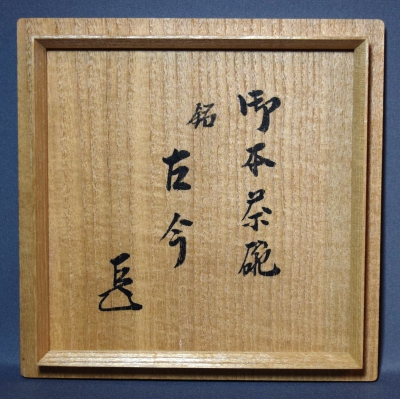 御本茶碗
銘
古今